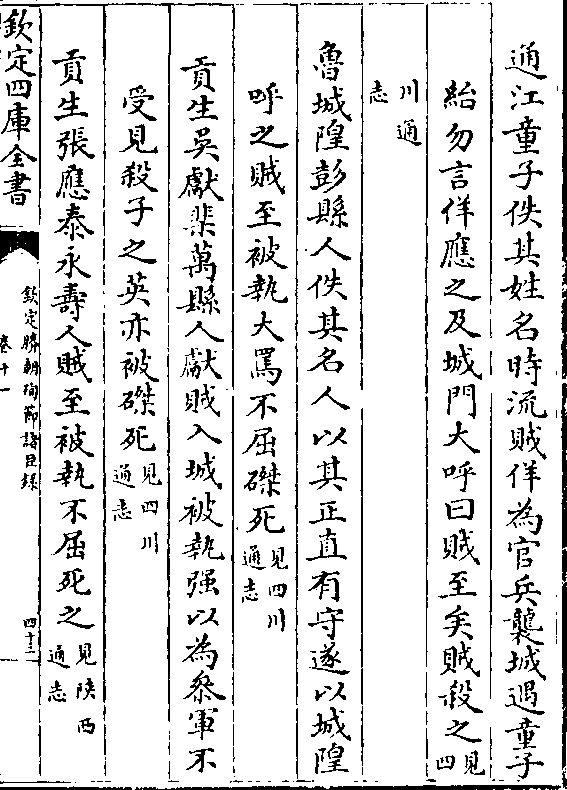 通江童子佚其姓名時流賊佯為官兵襲城遇童子
紿勿言佯應之及城門大呼曰賊至矣賊殺之見四
川通志
魯城隍彭縣人佚其名人以其正直有守遂以城隍
呼之賊至被執大罵不屈磔死見四川通志
貢生吳獻棐萬縣人獻賊入城被執强以為叅軍不
受見殺子之英亦被磔死見四川通志
貢生張應泰永壽人賊至被執不屈死之見陝西通志
欽定四庫全書
欽定勝朝殉節諸臣錄
卷十一
四十三